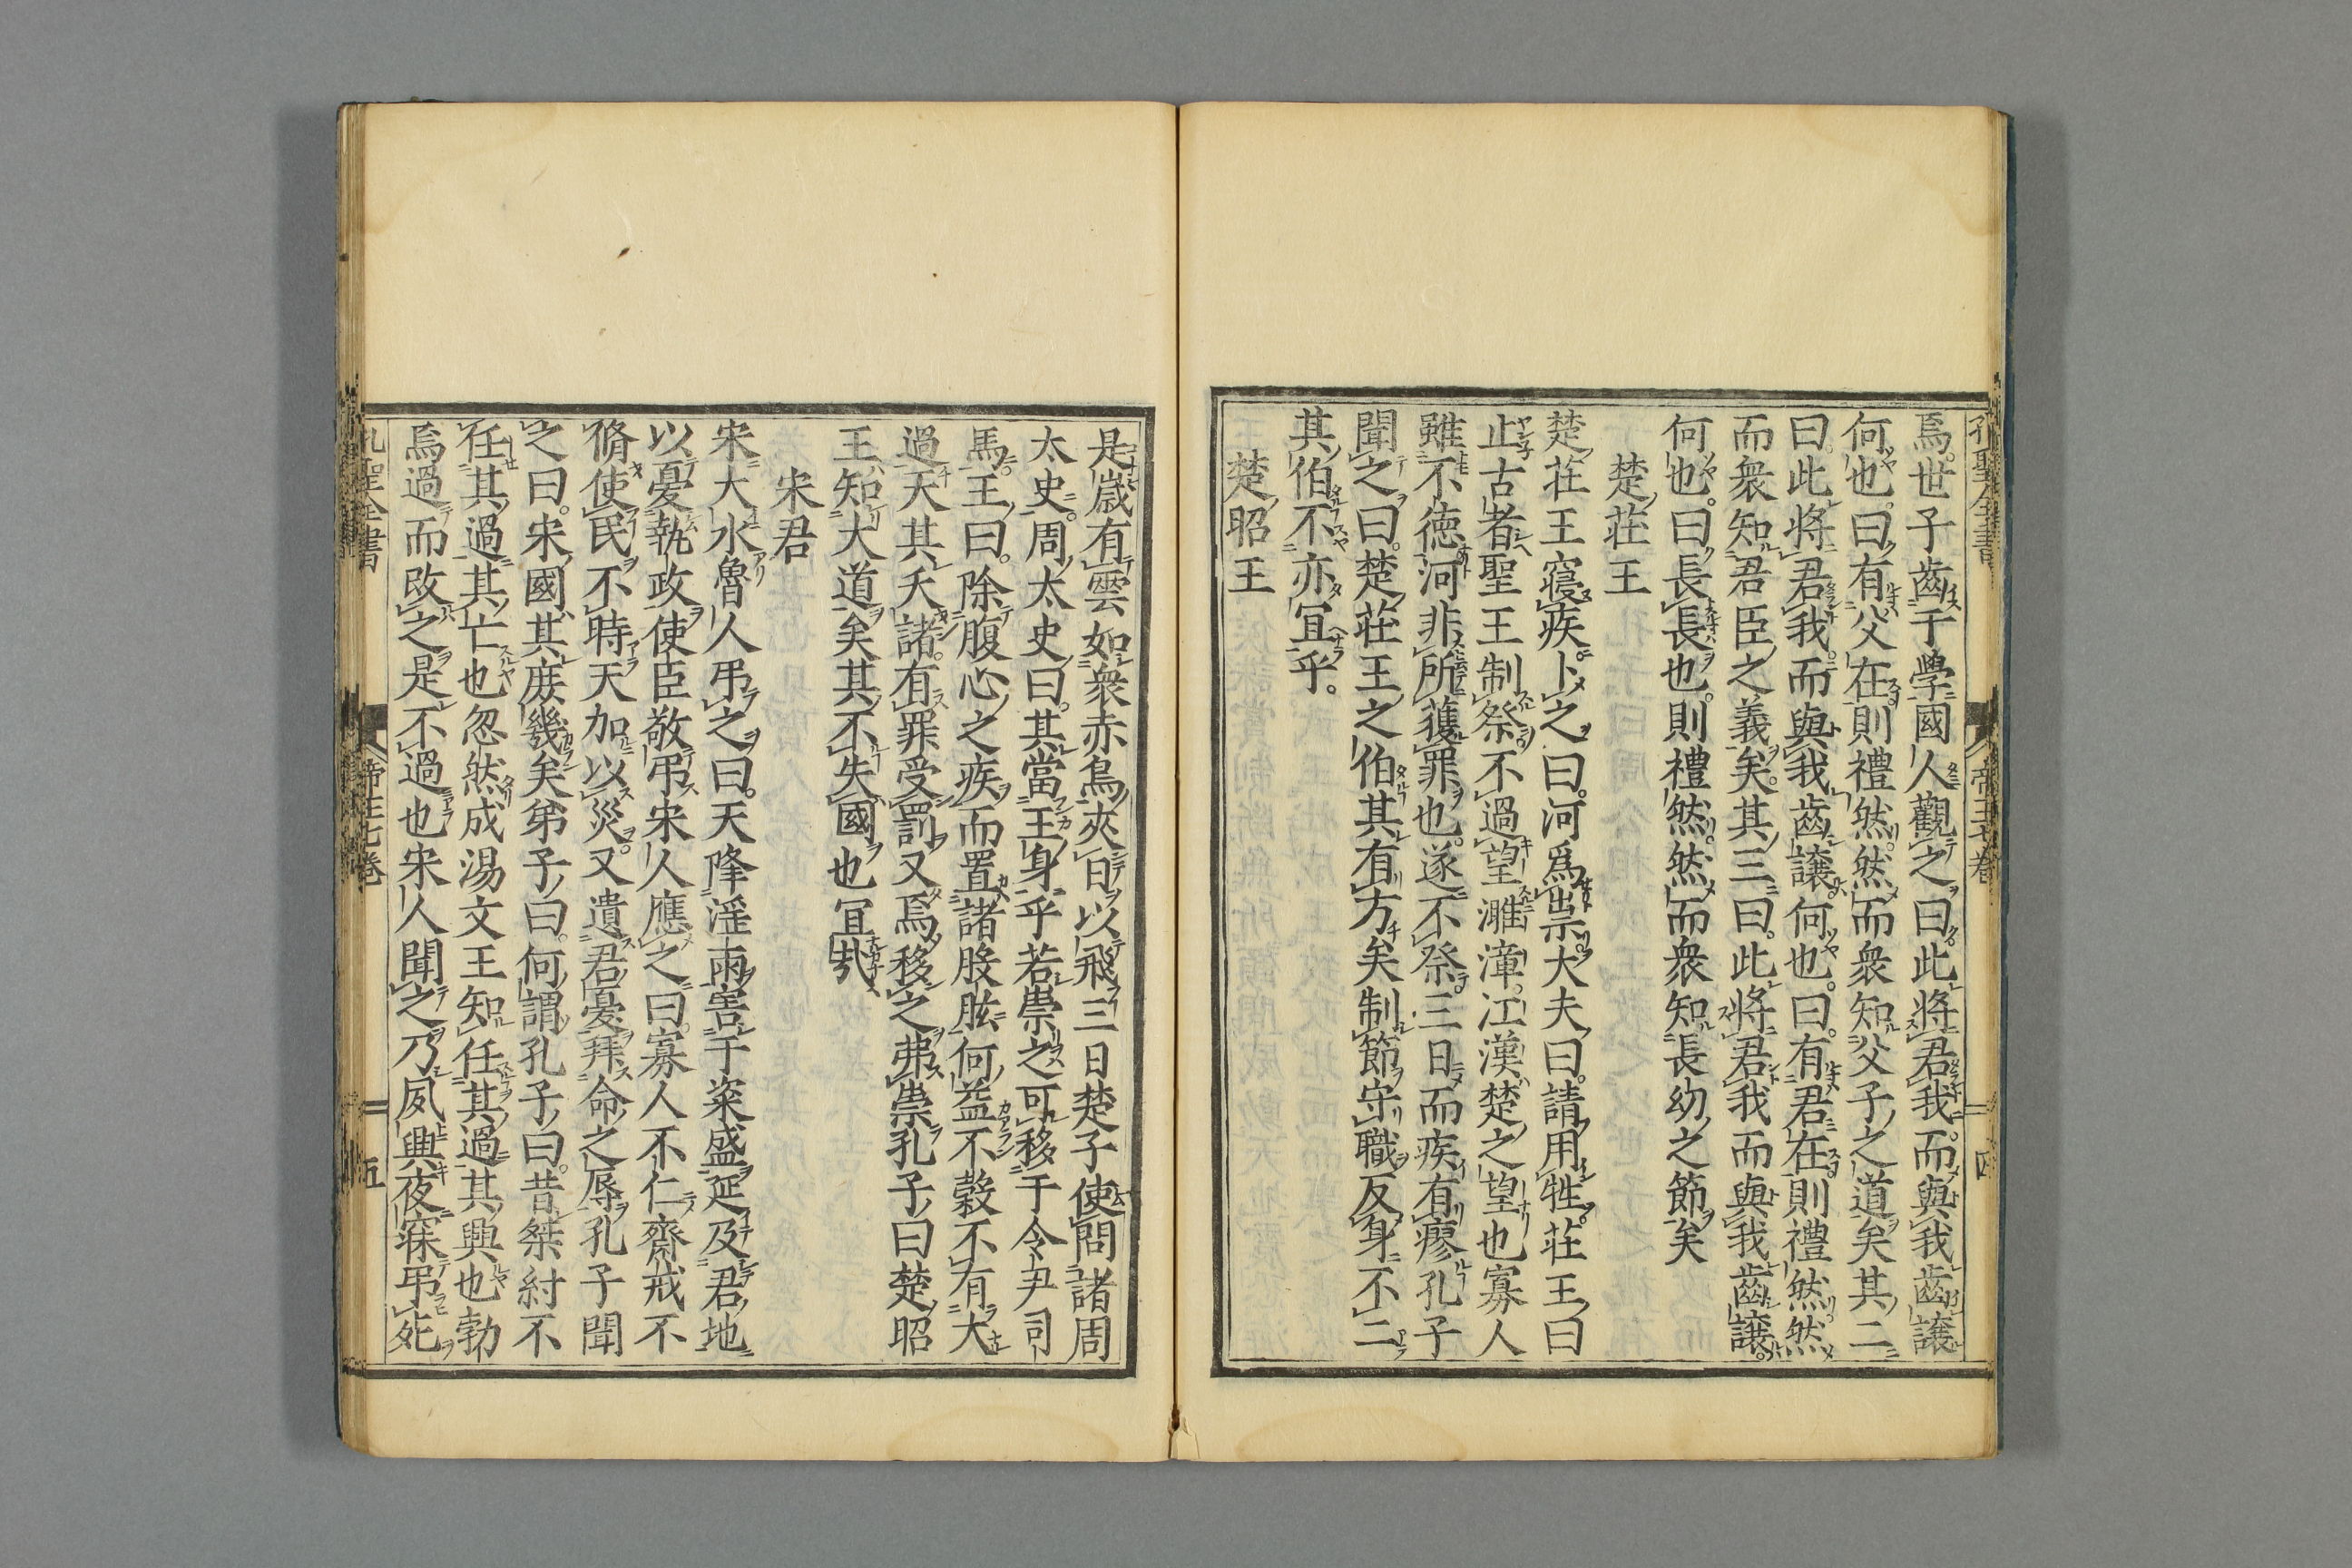 孔聖全書 帝王七巻 四
焉世子齒于學國人觀之曰此將君我而與我齒讓
何也曰有父在則禮然然而衆知父子之道矣其二
曰此將君我而與我齒讓何也曰有君在則禮然然
而衆知君臣之義矣其三曰此將君我而與我齒讓
何也曰長長也則禮然然而衆知長幼之節矣
楚荘王
楚荘王寢疾卜之曰河爲祟大夫曰請用牲荘王曰
止古者聖王制祭不過望濉漳江漢楚之望也寡人
雖不徳河非所獲罪也遂不祭三日而疾有瘳孔子
聞之曰楚荘王之伯其有方矣制節守職反身不二
其伯不亦冝乎
楚昭王
是歳有雲如衆赤烏夾日以飛三日楚子使問諸周
太史周太史曰其當王身乎若禜之可移于令尹司
馬王曰除腹心之疾而置諸股肱何益不穀不有大
過天其夭諸有罪受罰又焉移之弗禜孔子曰楚昭
王知大道矣其不失國也冝哉
宋君
宋大水魯人弔之曰天降淫雨害于粢盛延及君地
以憂執政使臣敬弔宋人應之曰寡人不仁齋戒不
脩使民不時天加以災又遺君憂拜命之辱孔子聞
之曰宋國其庻幾矣弟子曰何謂孔子曰昔桀紂不
任其過其亡也忽然成湯文王知任其過其興也勃
焉過而改之是不過也宋人聞之乃夙興夜寐弔死
孔聖全書 帝王七巻 五